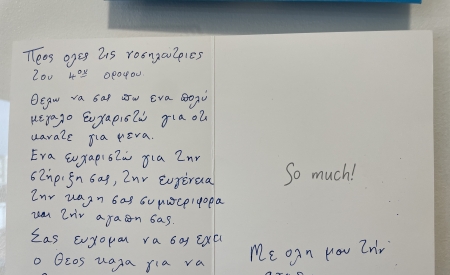 Προς ολες τις νοσηλευτριες
του 4ου οροφου.
Θελω να σας πω ενα πολύ
μεγαλο ευχαριστώ για οτι
κανατε για μενα.
Ενα ευχαριστώ για την
στήριξη σας, την ευγένεια
την καλη σας συμπεριφορα
και τήν αγαπη σας.
Σας ευχομαι να σας εχει
ο Θεος καλα για να
So much!
Με ολη μου τήν